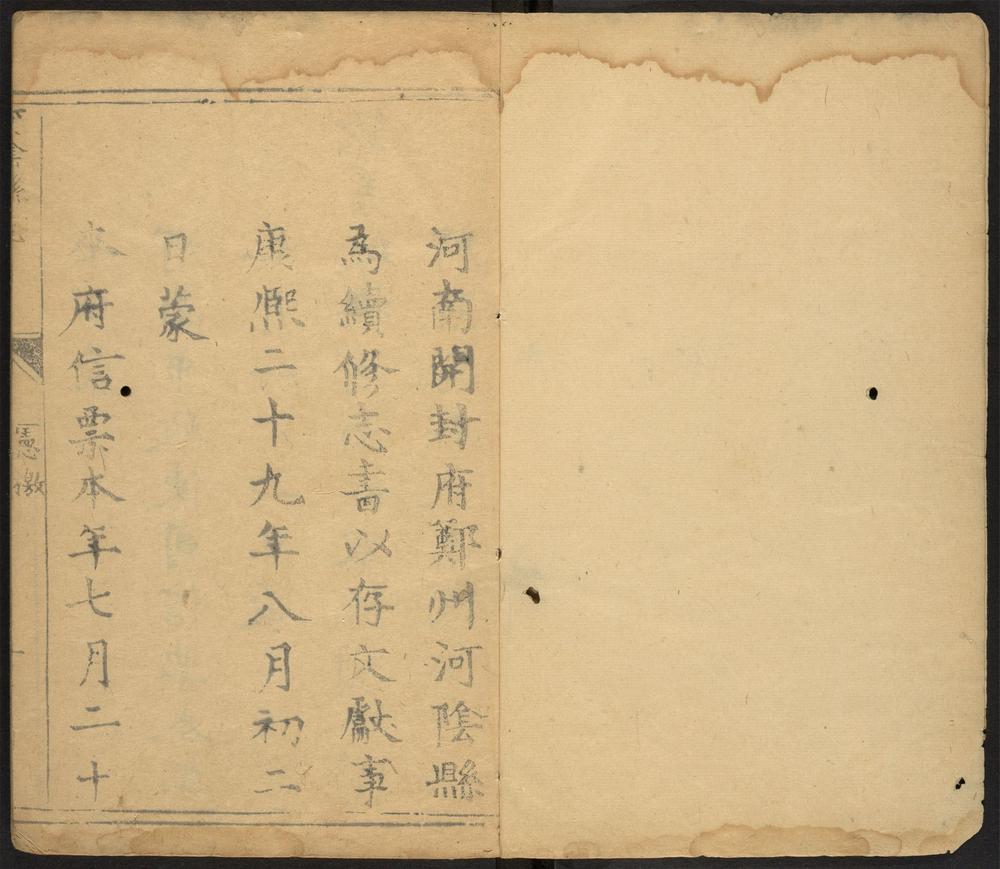 河南開封府鄭州河陰縣
為續修志書以存文獻事
康熙二十九年八月初二
日蒙
本府信票本年七月二十
憲檄